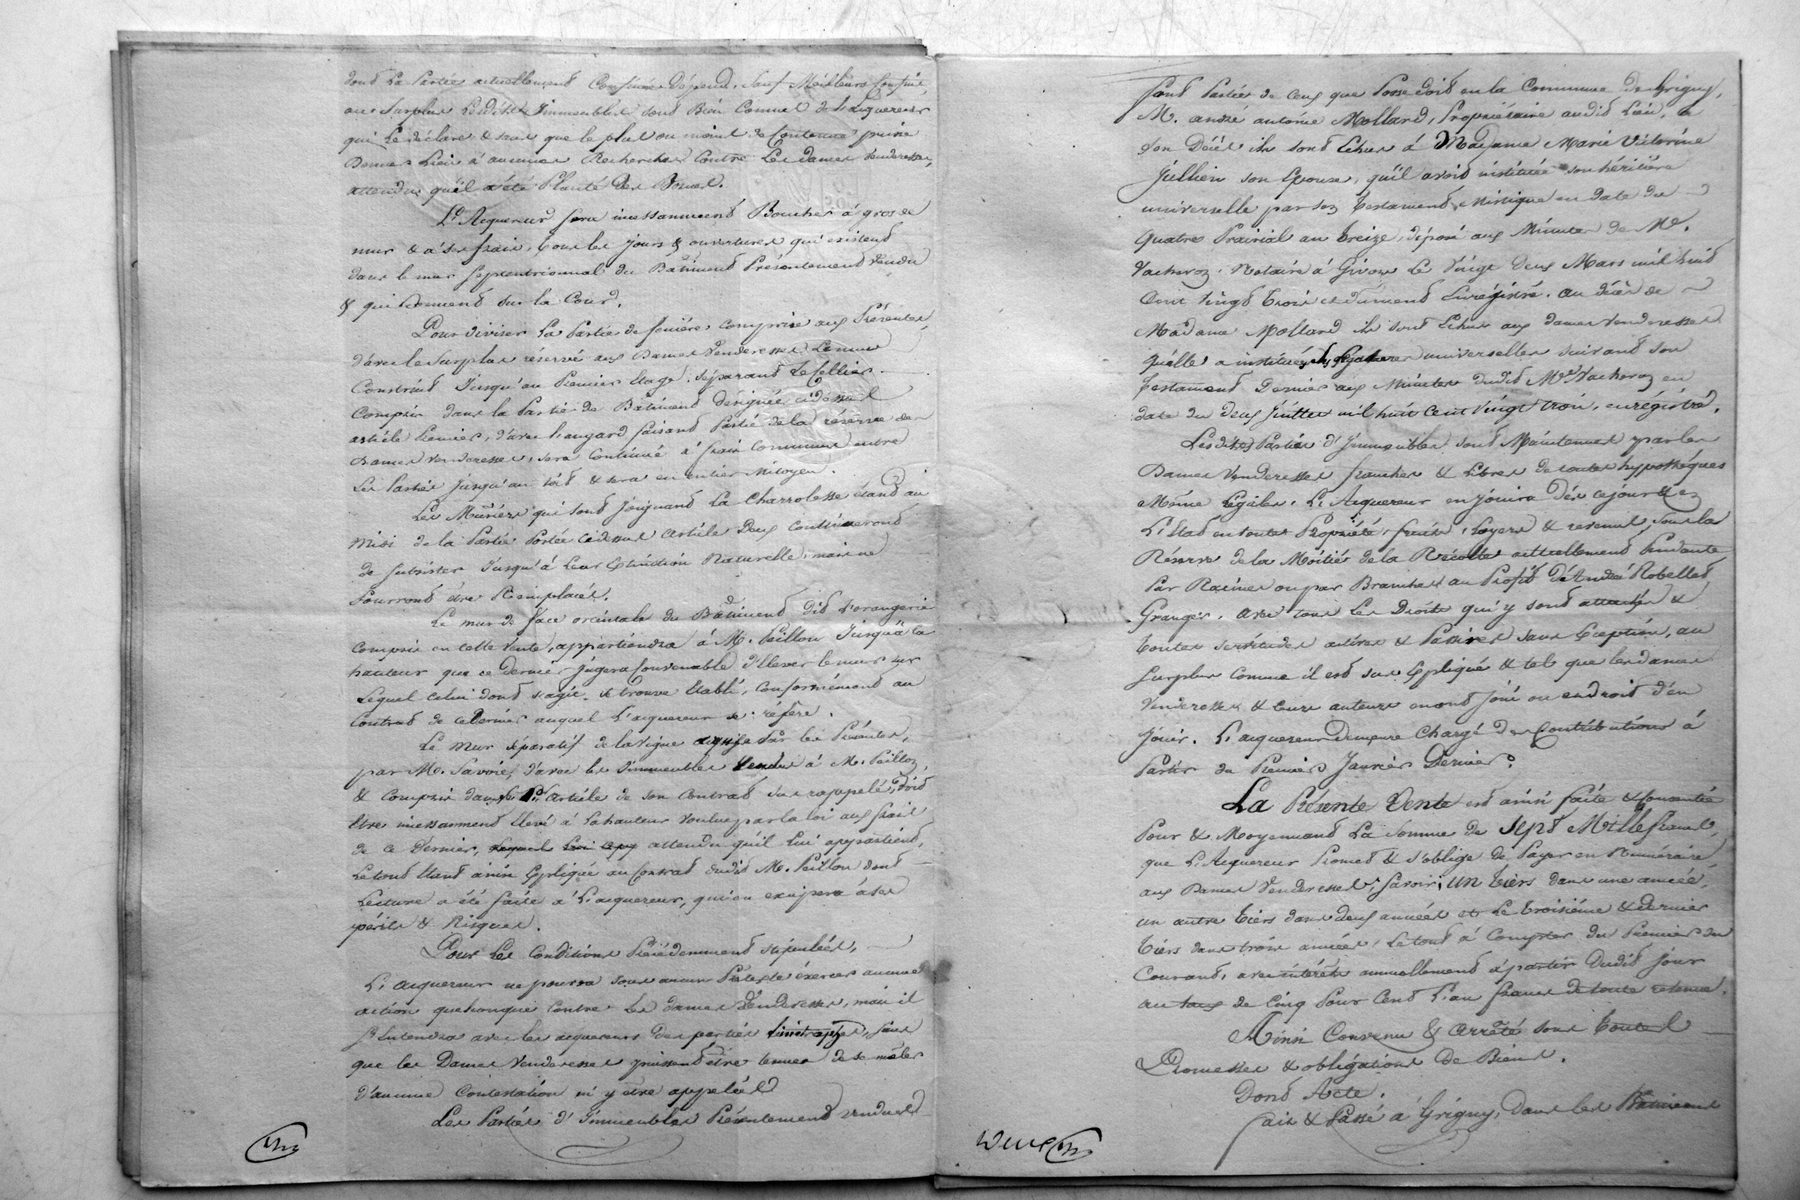 dont la Partie actuellement Confinée dépend, sauf Meilleurs Confins,
au Surplus Lesdits Immeubles sont Bien Connus de L'acquereur
qui Le déclare & sans que le plus ou moins de Contenue puisse
Donner Lieu à aucunes Recherches Contre Les dames Venderesses,
attendu qu'il a été Planté Des Bornes.
L'Acquereur fera incessamment Boucher à gros de
mur & à ses frais, tous les jours & ouvertures qui existent
dans le mur septentrionnal du Bâtiment Présentement Vendu
& qui Donnent sur la Cour.
Pour diviser La Partie de fenière comprise aux Présentes
d'avec le surplus réservé aux Dames Venderesses, Le mur
Construit Jusqu'au Premier Etage, séparant Le Cellier
Compris dans la Partie de Bâtiment designée ci dessus
article Premier, d'avec hangard faisant Partie de la réserve des
Dames Venderesses, sera Continué à frais Communs entre
Les Parties Jusqu'au toit & sera en entier Mitoyen.
Les Mûriers qui sont Joignant La Charrolesse étant au
Midi de la Partie Portée ci dessus article Deux Continueront
de subsister Jusqu'à Leur Extinction Naturelle, mais ne
Pourront être Remplacés.
Le mur de face orientale du Bâtiment Dit L'orangerie
compris en cette Vente, appartiendra à M. Peillon Jusqu'à la
hauteur que ce Dernier Jugera Convenable d'Elever le mur sur
Lequel celui dont s'agit se trouve Etabli, Conformément au
Contrat de ce Dernier auquel L'acquereur se réfère.
Le Mur séparatif de la Vigne acquise Par les Présentes,
par M. Savoie, d'avec les Immeubles Vendus à M. Peillon,
& Compris dans le 1er article de son Contrat sus rappelé, doit
Etre incessamment Elevé à La hauteur Voulue par la loi aux frais
de ce Dernier, attendu qu'il Lui appartient,
Le tout étant ainsi Expliqué au Contrat dudit M. Peillon dont
Lecture a été faite à L'acquereur, qui en excipera à ses
périls & Risques.
Pour Les Conditions Précédemment stipulées,
L'acquereur ne pourra sous aucun Prétexte éxercer aucune
action quelconque Contre Les dames Venderesses, mais il
s'Entendra avec les acquereurs Des parties limitrophes, sans
que les Dames Venderesses puissent être tenues de se mêler
d'aucune Contestation ni y être appelées
Les Parties d'Immeubles Présentement Vendues
font Partie de ceux que Possedoit en la Commune de Grigny,
M. andré antoine Mollard, Propriétaire audit Lieu, à
son Décès ils sont Echus à Madame Marie Victorine
Jullien son Epouse, qu'il avoit instituée son héritière
universelle par son testament Mistique en date du
quatre Prairial an treize, déposé aux Minutes de Me.
Vacheron, Notaire à Givors Le Vingt Deux Mars mil huit
Cent Vingt trois et dument Enrégistré. au décès de
Madame Mollard ils sont Echus aux dames Venderesses
qu'elle a instituées ses Légataires universelles suivant son
testament Dernier aux Minutes dudit Me. Vacheron en
date du deux Juillet mil huit cent vingt trois, enrégistré.
Lesdites Parties d'Immeubles sont Maintenues par les
Dames Venderesses franches & Libres de toutes hypothéques
Même Légales. L'Acquereur en jouira Dès ce jour & en
L'Etat en toute Propriété, fruits, Loyers & revenus, sous la
Réserve de la Moitié de la Récolte actuellement Pendante
Par Racines ou par Branches au Profit d'André Robellet
Granger. avec tous Les Droits qui y sont attachés &
toutes servitudes actives & Passives sans Exception, au
surplus Comme il est sus Expliqué & tels que les dames
Venderesses & Leurs auteurs en ont Joui ou eu droit d'en
Jouir. L'acquereur demeure Chargé des Contributions à
Partir du Premier Janvier Dernier.
La Présente Vente est ainsi faite & consentie
Pour & Moyennant La Somme de Sept Mille francs,
que L'Acquereur Promet & s'oblige de Payer en Numéraire,
aux Dames Venderesses, savoir, un tiers dans une année,
un autre tiers dans deux années et Le troisième & dernier
tiers dans trois années, Le tout à Compter du Premier du
Courant, avec intérêts annuellement à partir Dudit Jour
au taux de Cinq Pour Cent L'an francs de toute retenue.
Ainsi Convenu & Arrêté sous toutes
Promesses & obligations de Biens.
Dont Acte.
fait & Passé à Grigny, dans les Bâtiments